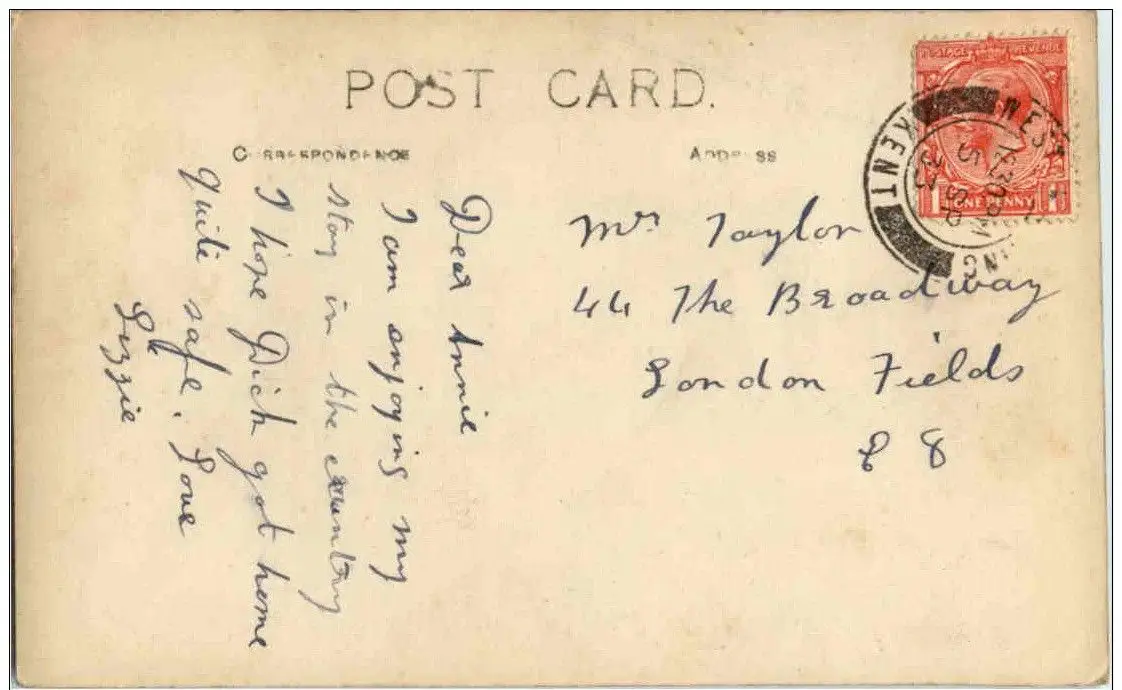 POST CARD.
CORRESPONDENCE
ADDRESS
POSTAGE REVENUE
1 ONE PENNY 1
KENT
5 SP
Dear Annie
I am enjoying my
stay in the country
I hope Dick got home
quite safe. Love
Lizzie
Mrs Taylor
44 The Broadway
London Fields
E 8